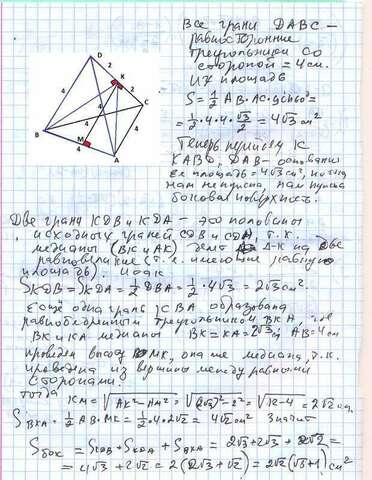 Все грани DABC –
равносторонние
треугольники со
стороной = 4 см.
Их площадь
S = 1/2 AB·AC·sin60° =
= 1/2·4·4·√3/2 = 4√3 см²
Теперь пирамида K
KABD, DAB – основание
Ее площадь = 4√3 см², но она
нам не нужна, нам нужна
боковая поверхность.
D
2
K
2
C
4
4
4
4
B
M
4
A
Две грани KDB и KDA – это половины
исходных граней CDB и CDA, т.к.
медианы (BK и AK) делят Δ-к на две
равновеликие (т.е. имеющие равную
площадь). Итак
S KDB = S KDA = 1/2 DBA = 1/2·4√3 = 2√3 см².
Ещё одна грань KBA образована
равнобедренным треугольником BKA, где
BK и KA медианы BK = KA = 2√3, AB = 4 см
проведем высоту MK, она же медиана, т.к.
проведена из вершины между равными
сторонами
тогда KM = √AK² – AM² = √(2√3)² – 2² = √12–4 = 2√2 см,
S BKA = 1/2 AB·MK = 1/2·4·2√2 = 4√2 см² Значит
S бок = S KDB + S KDA + S BKA = 2√3 + 2√3 + 2√2 =
= 4√3 + 2√2 = 2(2√3 + √2) = 2√2(√3+1) см²